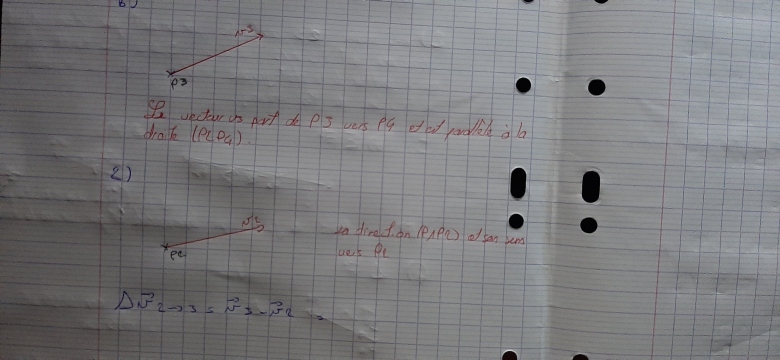 b)
v3
P3
Le vecteur v3 part de P3 vers P4 et est parallèle à la
droite (P2P4)
2)
v2
P2
sa direction (P1P2) et son sens
vers P2
Δv⃗ 2→3 = v⃗3 - v⃗2 =